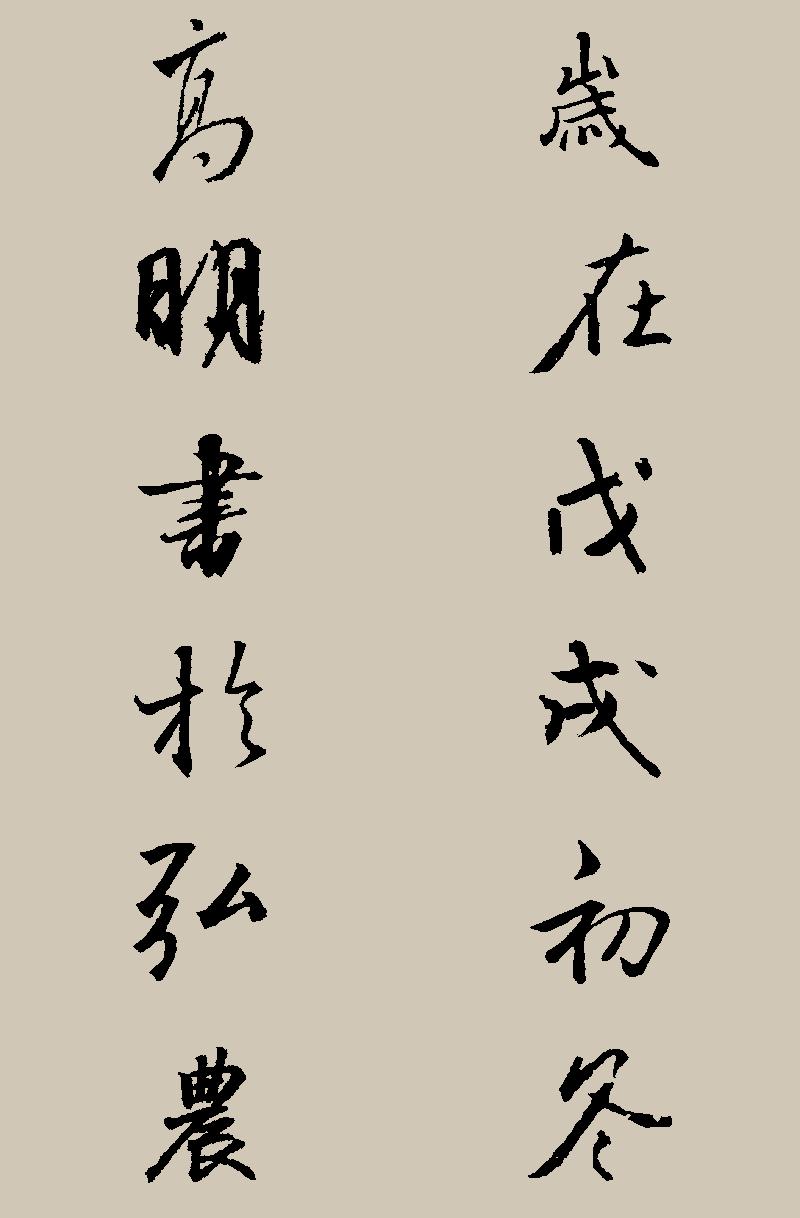 歲在戊戌初冬
高明書於弘農